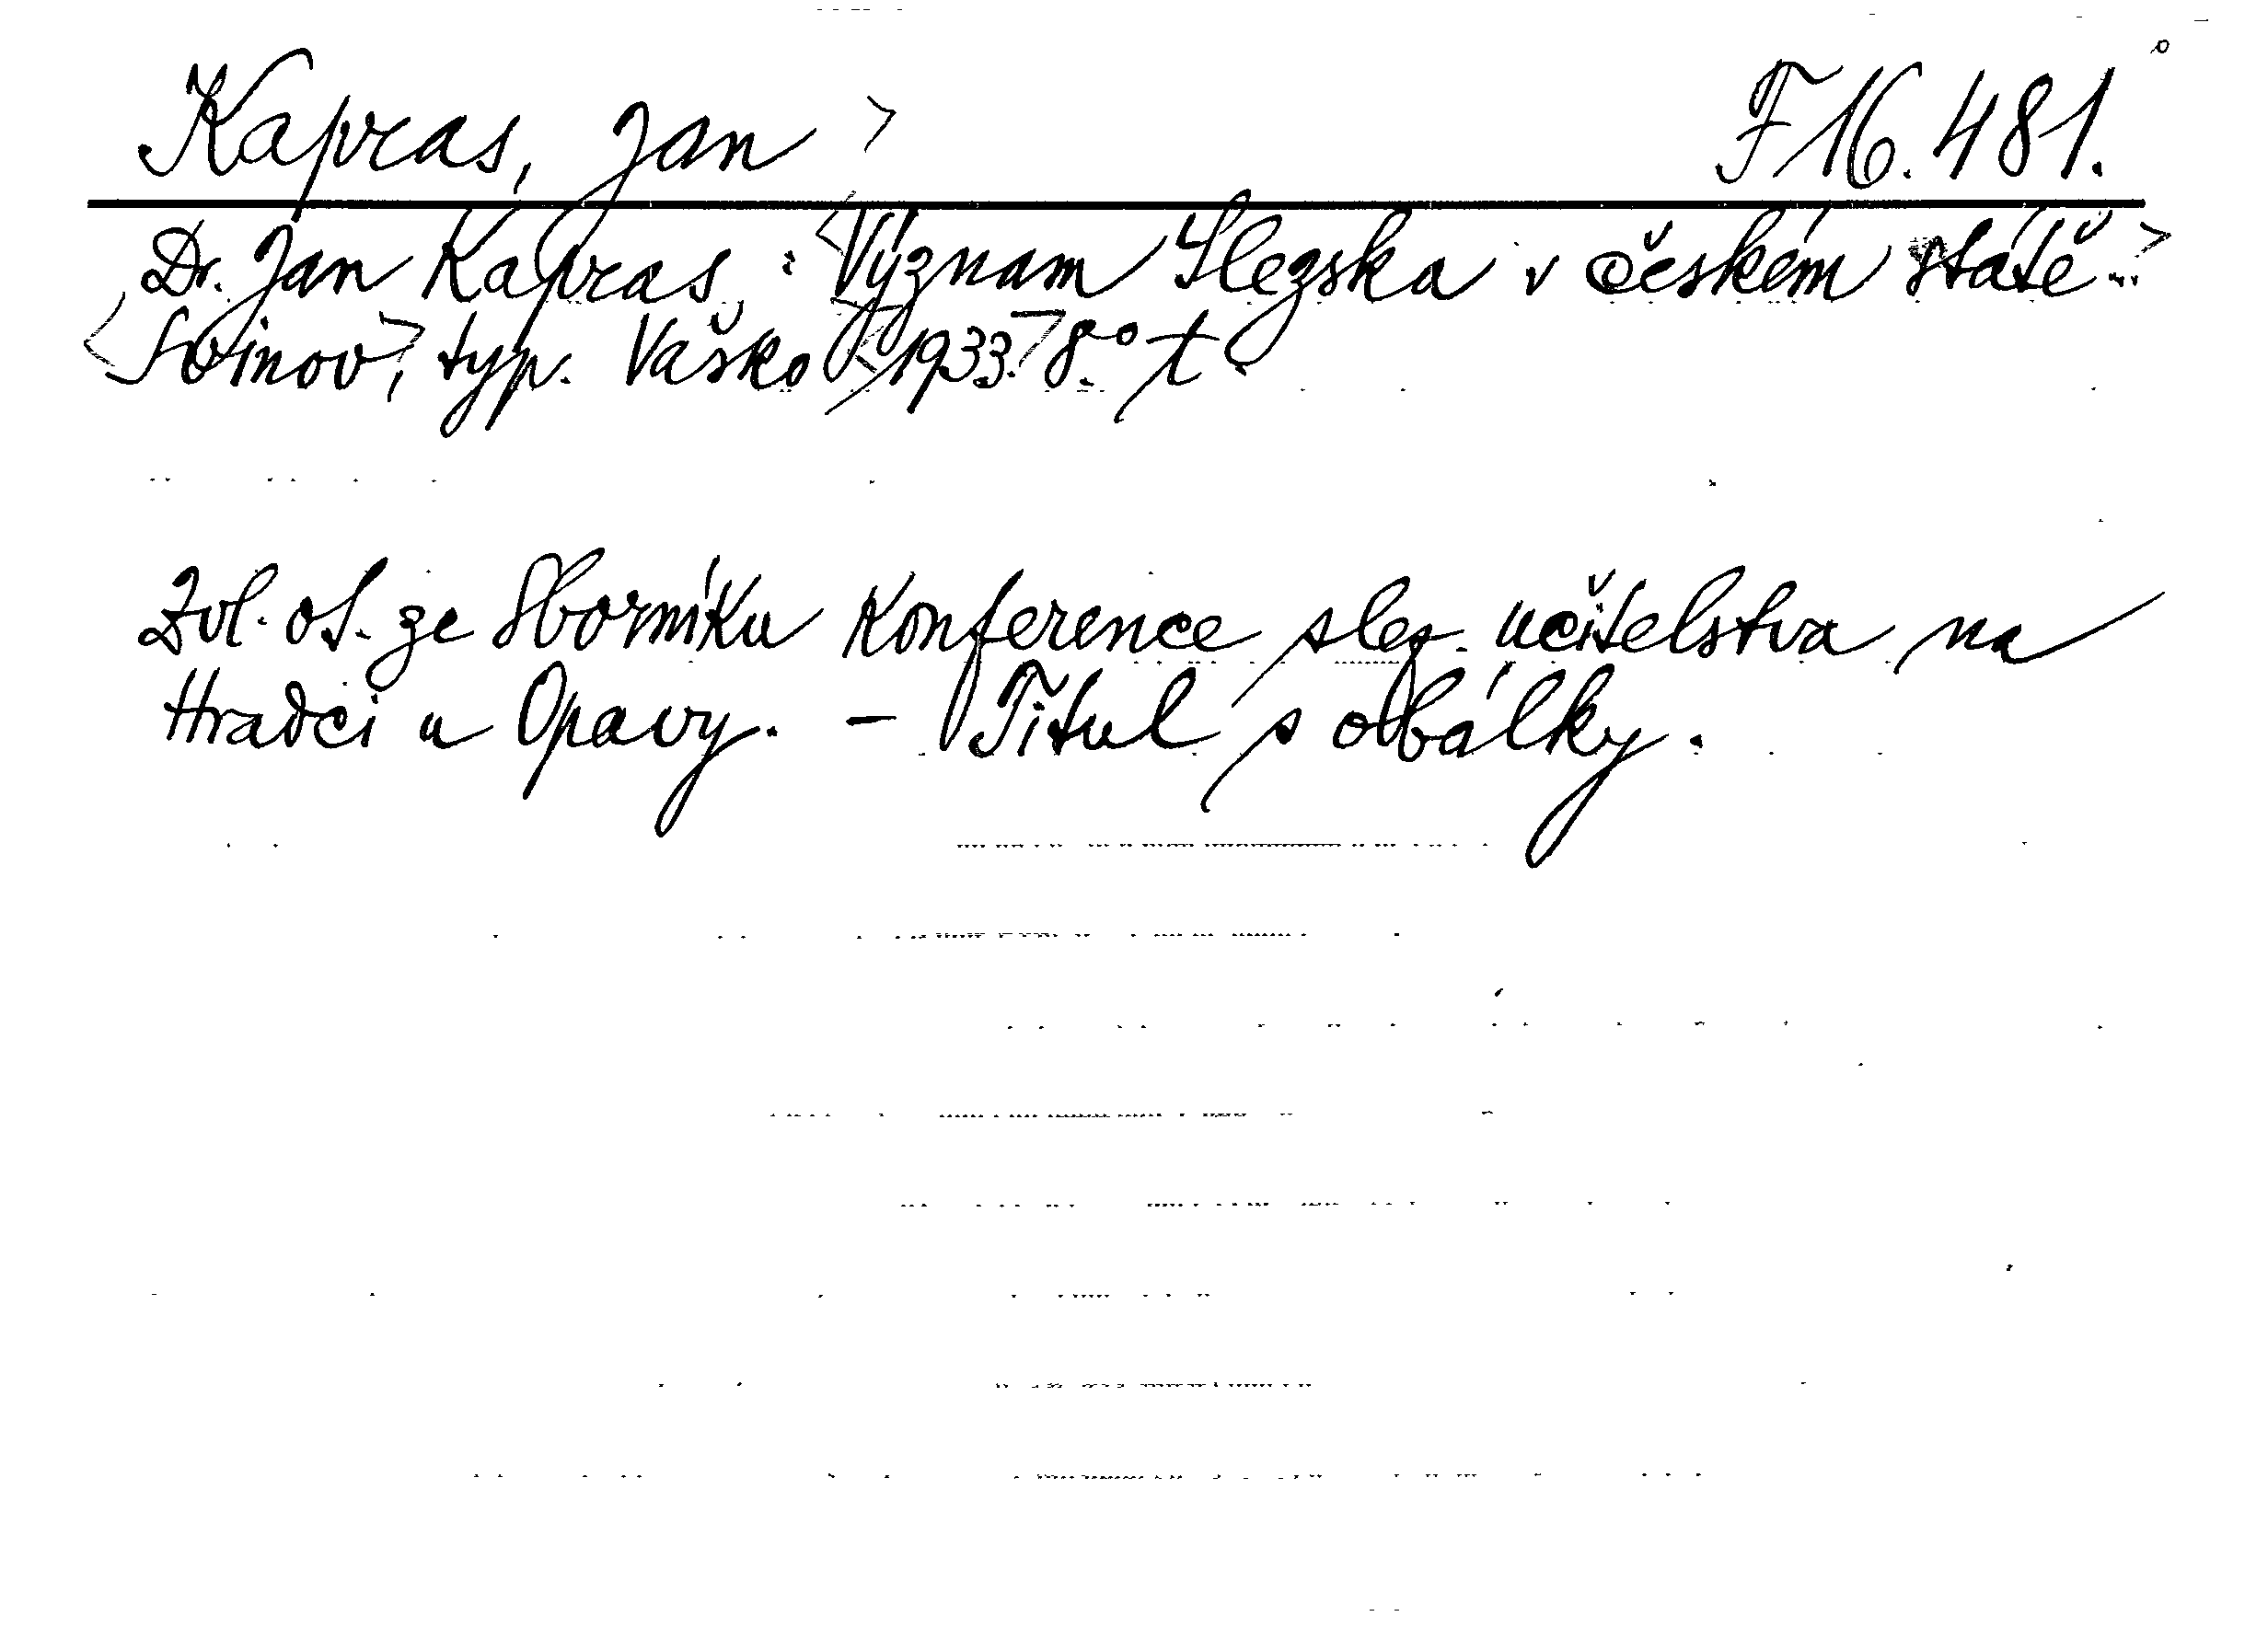 Kapras, Jan > F 16.481.
Dr. Jan Kapras: <Význam Slezska v českém státě.>
<Svinov>, typ. Vaško <1933.> 8.° t.
Zvl. ot. ze Sborníku Konference slez. učitelstva na
Hradci u Opavy. – Titul s obálky.